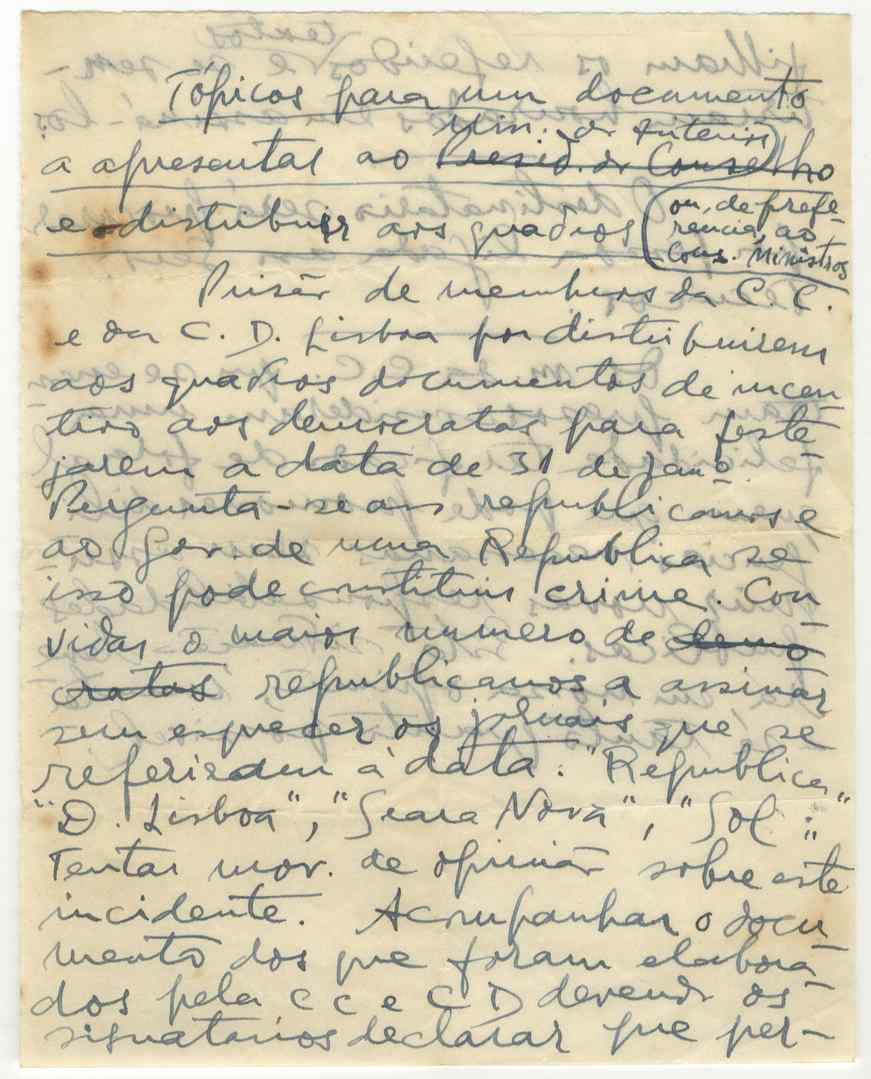 Tópicos para um documento
Min. do Interior
a apresentar ao Presid. do Conselho
e distribuir aos quadros (ou, de prefe-
rencia, ao
Cons. Ministros
Prisão de membros da C. C.
e da C. D. Lisboa por distribuirem
aos quadros documentos de incen
tivo aos democratas para feste-
jarem a data de 31 de Janº.
Pergunta-se aos republicanos e
ao Gov. de uma Republica se
isso pode constituir crime. Con
vidar o maior numero de demo
cratas, republicanos a assinar
sem esquecer os jornais que se
referiram à data: "Republica"
"D. Lisboa", "Seara Nova", "Sol":
Tentar mov. de opinião sobre este
incidente. Acompanhar o docu
mento dos que foram elabora-
dos pela C C e C D devendo os
signatarios declarar que per-